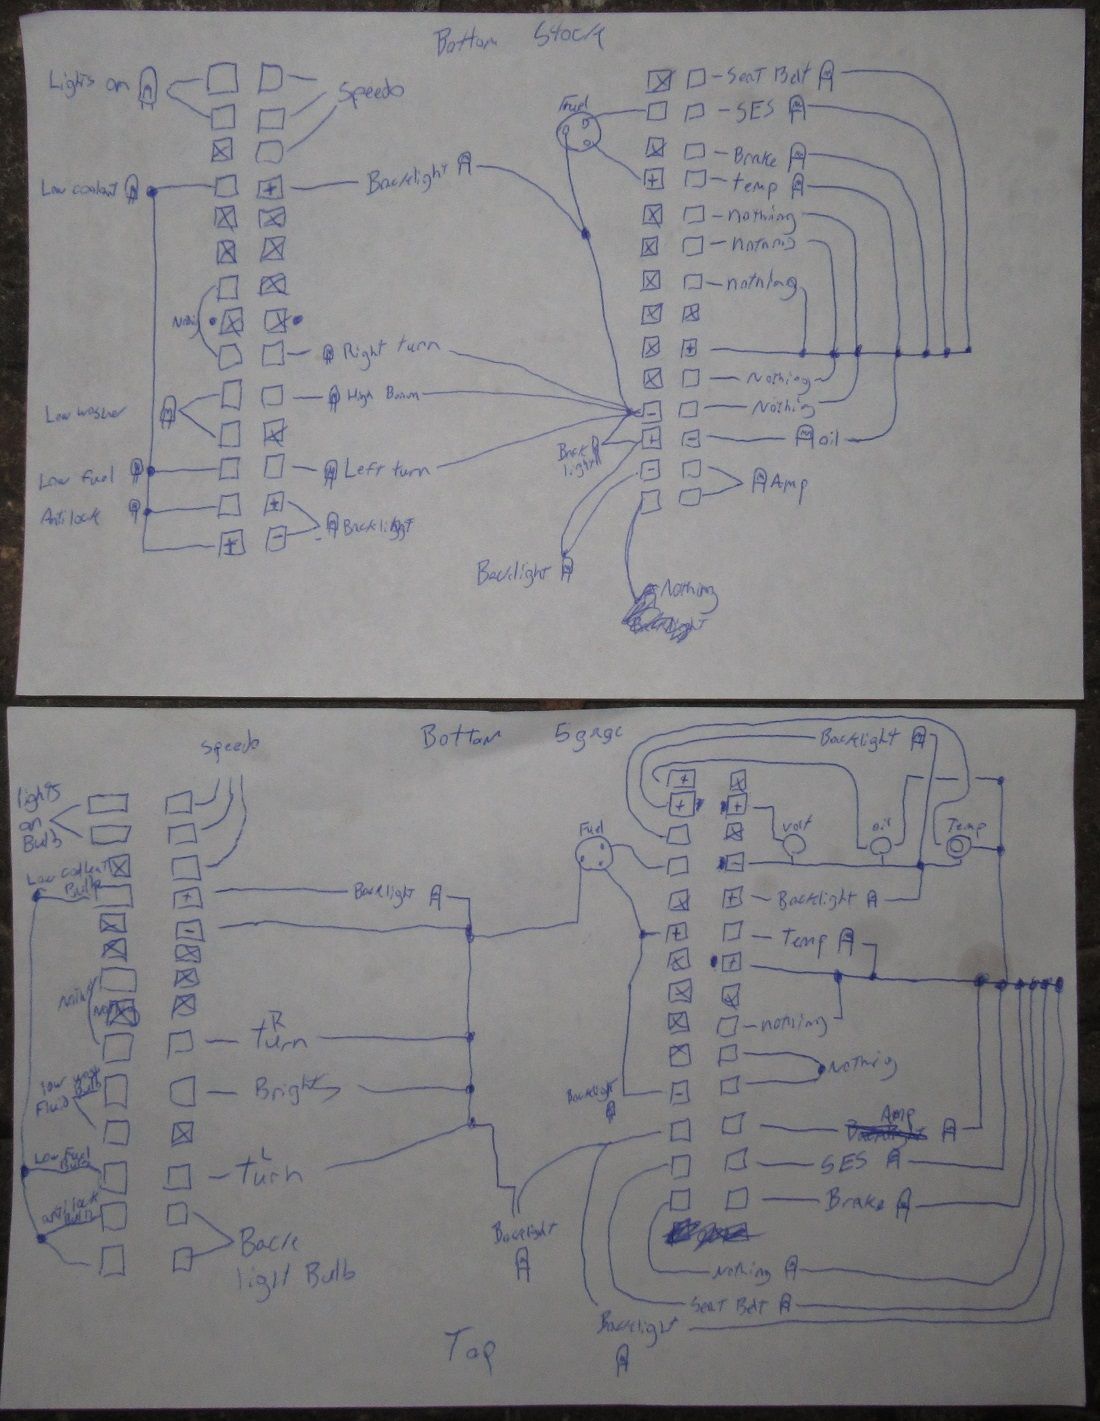 Bottom Stock
Lights on
Speedo
Low coolant
Backlight
Fuel
Seat Belt
SES
Brake
temp
nothing
nothing
nothing
Right turn
High Beam
Low washer
Left turn
Low fuel
Antilock
Backlight
Back
light
Nothing
Nothing
oil
Amp
Backlight
Nothing
Bottom 5gage
Speedo
lights
on
Bulb
Low coolant
Bulb
Backlight
R
turn
Brights
Fluid
Low Fuel
Bulb
antilock
Bulb
L
turn
Back
light Bulb
Top
Fuel
Backlight
volt
oil
Temp
Backlight
Temp
nothing
Nothing
Backlight
Amp
SES
Brake
Backlight
Nothing
Seat Belt
Backlight